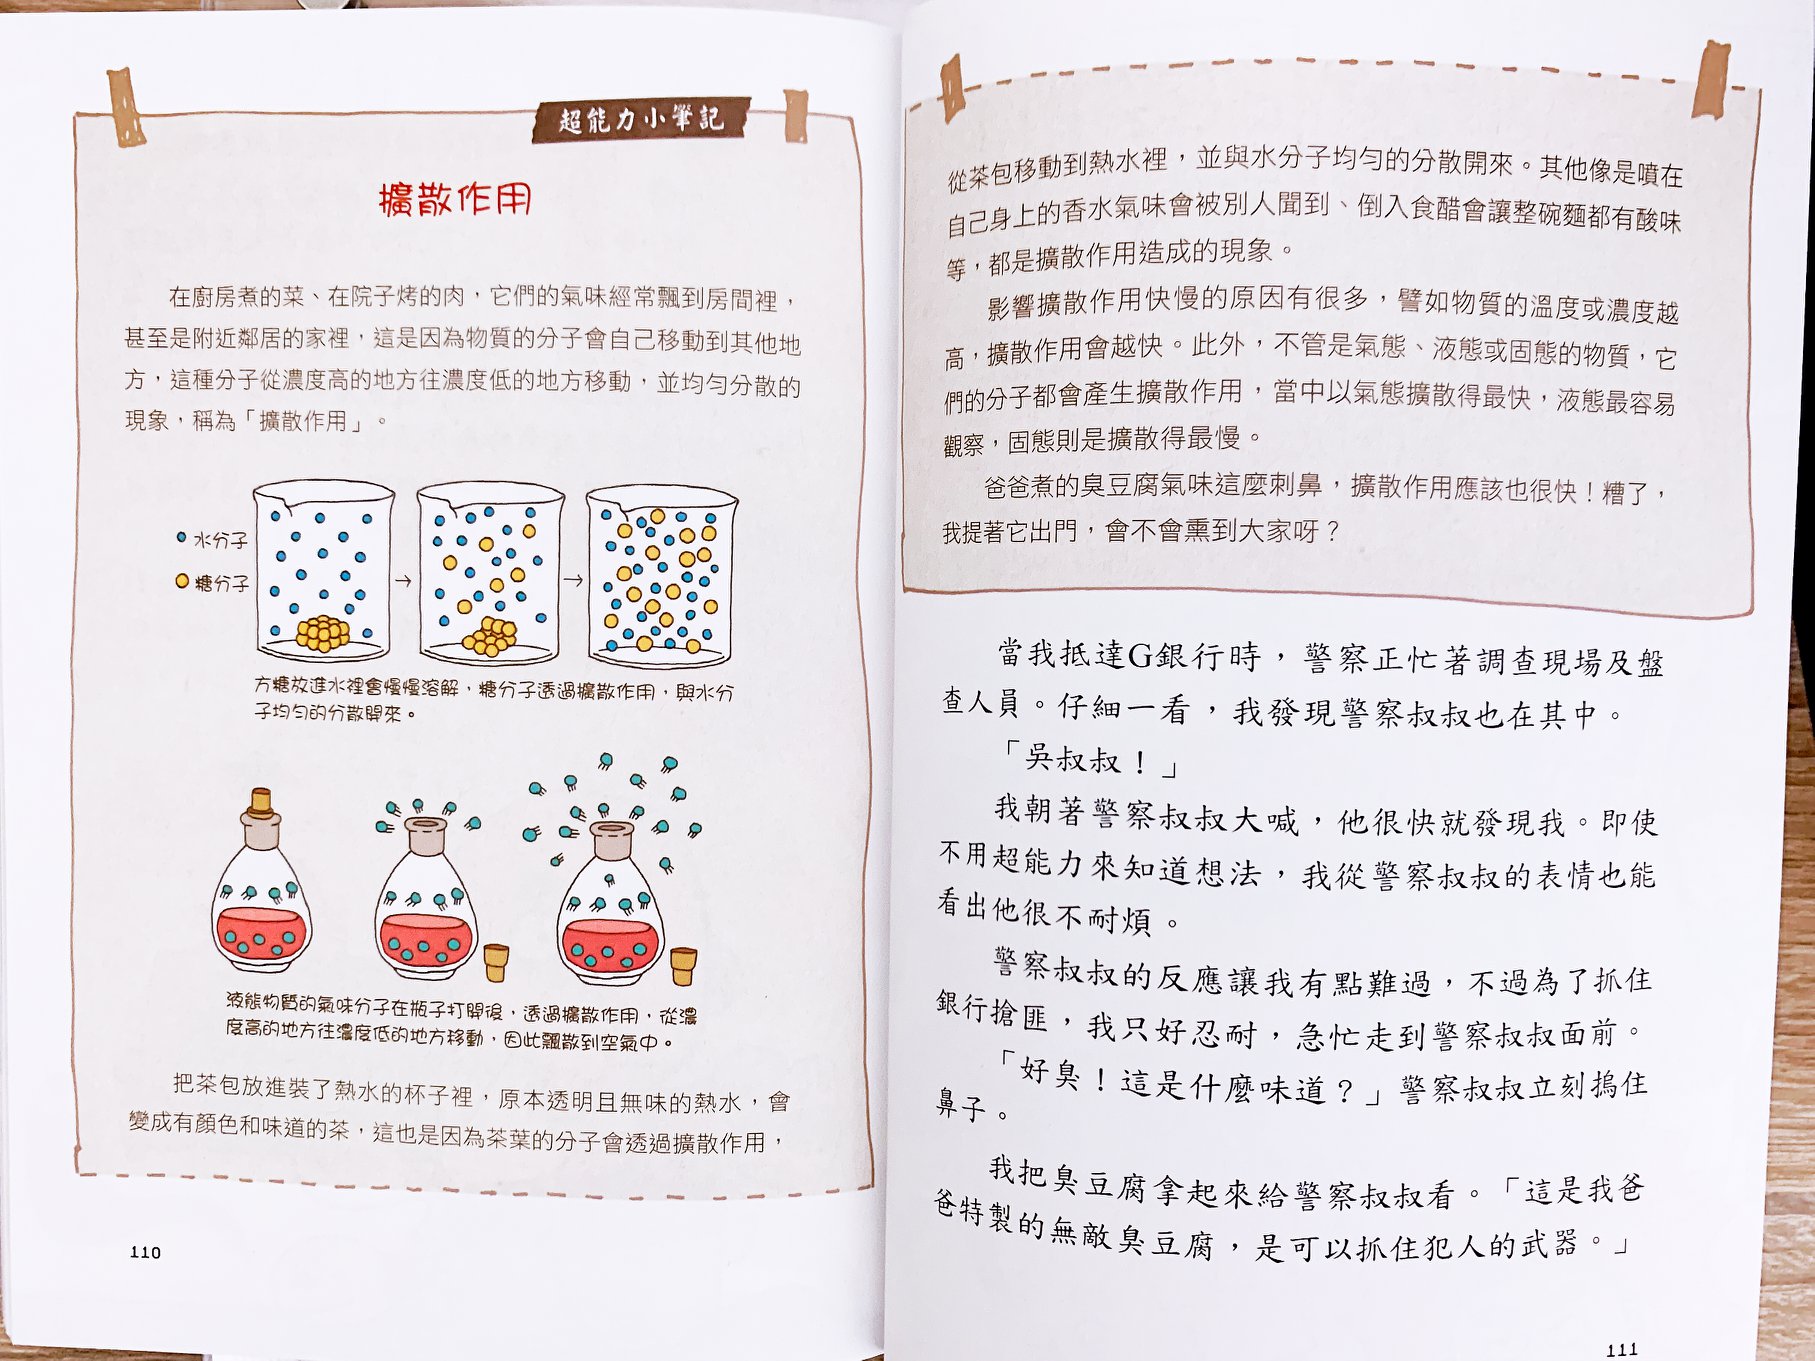 超能力小筆記
擴散作用
在廚房煮的菜、在院子烤的肉，它們的氣味經常飄到房間裡，
甚至是附近鄰居的家裡，這是因為物質的分子會自己移動到其他地
方，這種分子從濃度高的地方往濃度低的地方移動，並均勻分散的
現象，稱為「擴散作用」。
水分子
糖分子
方糖放進水裡會慢慢溶解，糖分子透過擴散作用，與水分
子均勻的分散開來。
液態物質的氣味分子在瓶子打開後，透過擴散作用，從濃
度高的地方往濃度低的地方移動，因此飄散到空氣中。
把茶包放進裝了熱水的杯子裡，原本透明且無味的熱水，會
變成有顏色和味道的茶，這也是因為茶葉的分子會透過擴散作用，
110
從茶包移動到熱水裡，並與水分子均勻的分散開來。其他像是噴在
自己身上的香水氣味會被別人聞到、倒入食醋會讓整碗麵都有酸味
等，都是擴散作用造成的現象。
影響擴散作用快慢的原因有很多，譬如物質的溫度或濃度越
高，擴散作用會越快。此外，不管是氣態、液態或固態的物質，它
們的分子都會產生擴散作用，當中以氣態擴散得最快，液態最容易
觀察，固態則是擴散得最慢。
爸爸煮的臭豆腐氣味這麼刺鼻，擴散作用應該也很快！糟了，
我提著它出門，會不會熏到大家呀？
當我抵達G銀行時，警察正忙著調查現場及盤
查人員。仔細一看，我發現警察叔叔也在其中。
「吳叔叔！」
我朝著警察叔叔大喊，他很快就發現我。即使
不用超能力來知道想法，我從警察叔叔的表情也能
看出他很不耐煩。
警察叔叔的反應讓我有點難過，不過為了抓住
銀行搶匪，我只好忍耐，急忙走到警察叔叔面前。
「好臭！這是什麼味道？」警察叔叔立刻摀住
鼻子。
我把臭豆腐拿起來給警察叔叔看。「這是我爸
爸特製的無敵臭豆腐，是可以抓住犯人的武器。」
111